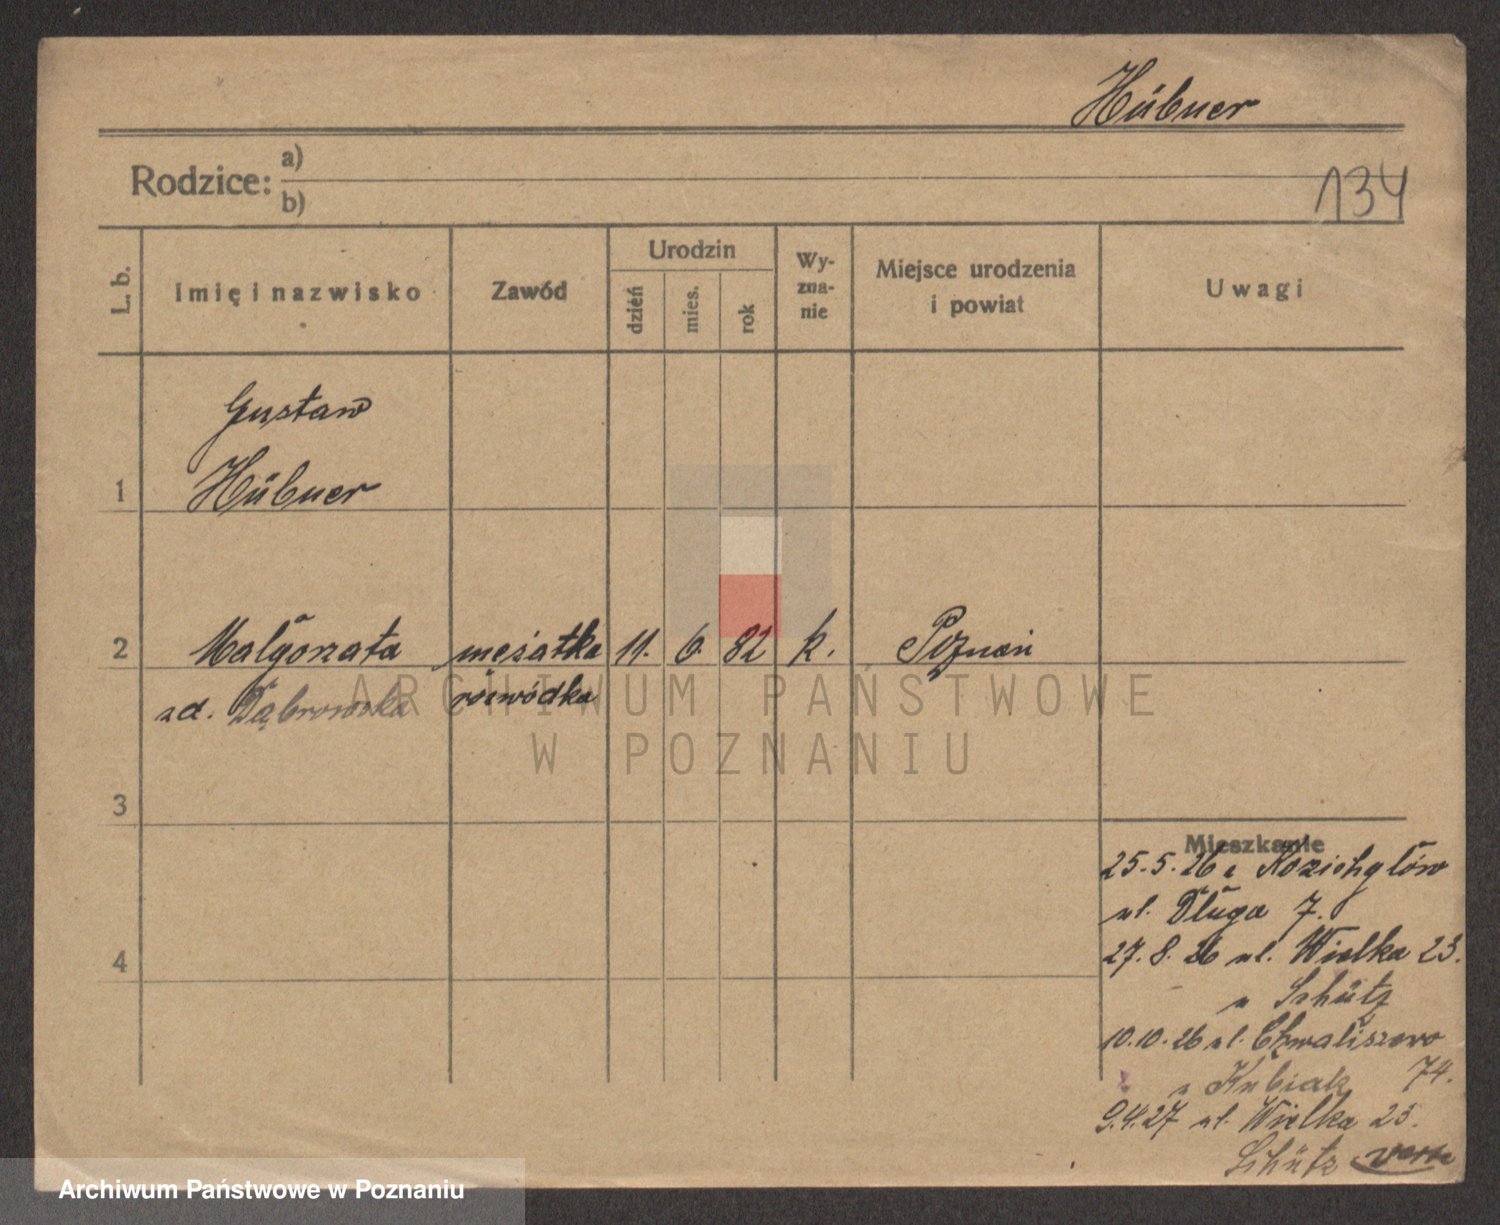 Hübner
Rodzice: a)
b)
134
L. b.
Imię i nazwisko
Zawód
Urodzin
dzień
mies.
rok
Wy-
zna-
nie
Miejsce urodzenia
i powiat
Uwagi
Gustaw
1 Hübner
2 Małgorzata mężatka 11. 6. 82 k. Poznań
zd. Dąbrowska rozwódka
ARCHIWUM PAŃSTWOWE
W POZNANIU
3
Mieszkanie
25.5.26 z Kozichgłów
ul. Długa 7.
4
27.8.26 ul. Wielka 23.
u Schütz
10.10.26 ul. Chwaliszewo
u Kubiak 74.
9.4.27 ul. Wielka 23.
Schütz verte
Archiwum Państwowe w Poznaniu